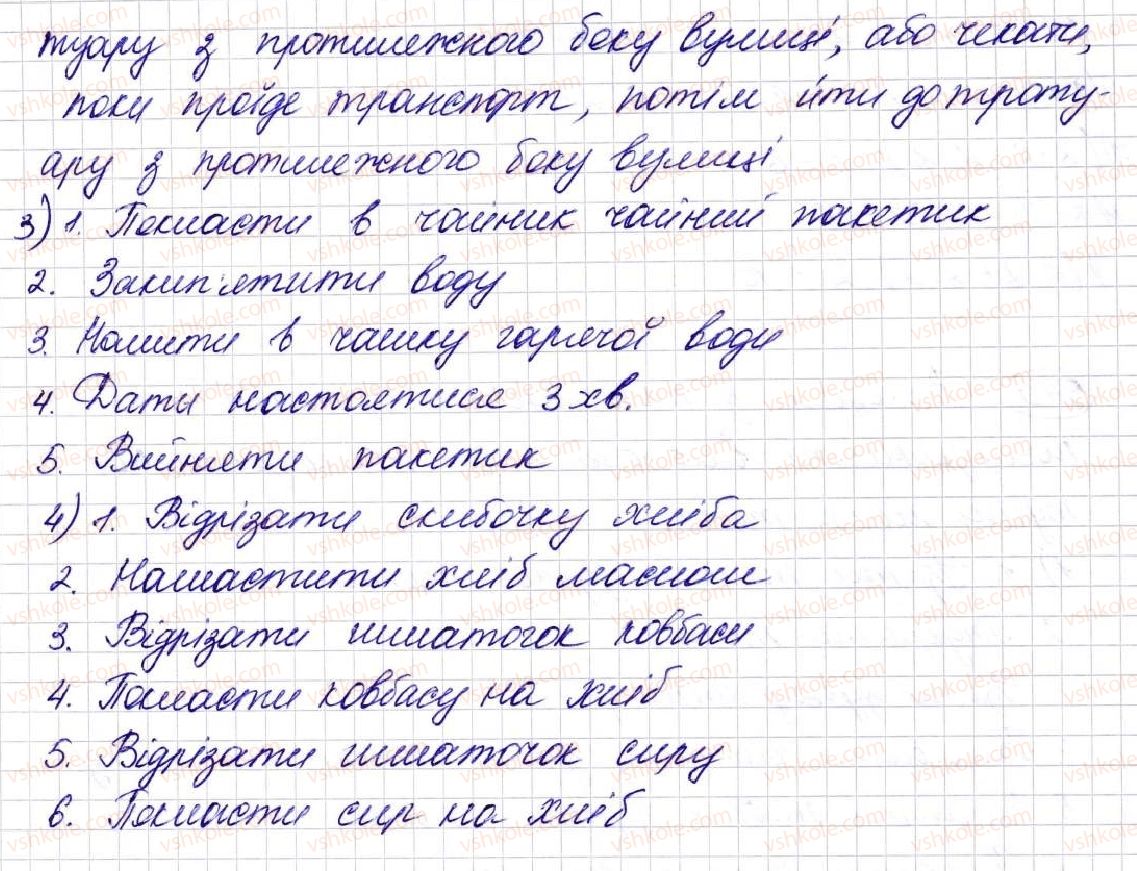 туару з протилежного боку вулиці, або чекати,
поки проїде транспорт, потім йти до троту-
ару з протилежного боку вулиці
3) 1. Покласти в чайник чайний пакетик
2. Закип'ятити воду
3. Налити в чашку гарячої води
4. Даты настоятися 3 хв.
5. Вийняти пакетик
4) 1. Відрізати скибочку хліба
2. Намастити хліб маслом
3. Відрізати шматочок ковбаси
4. Покласти ковбасу на хліб
5. Відрізати шматочок сиру
6. Покласти сир на хліб